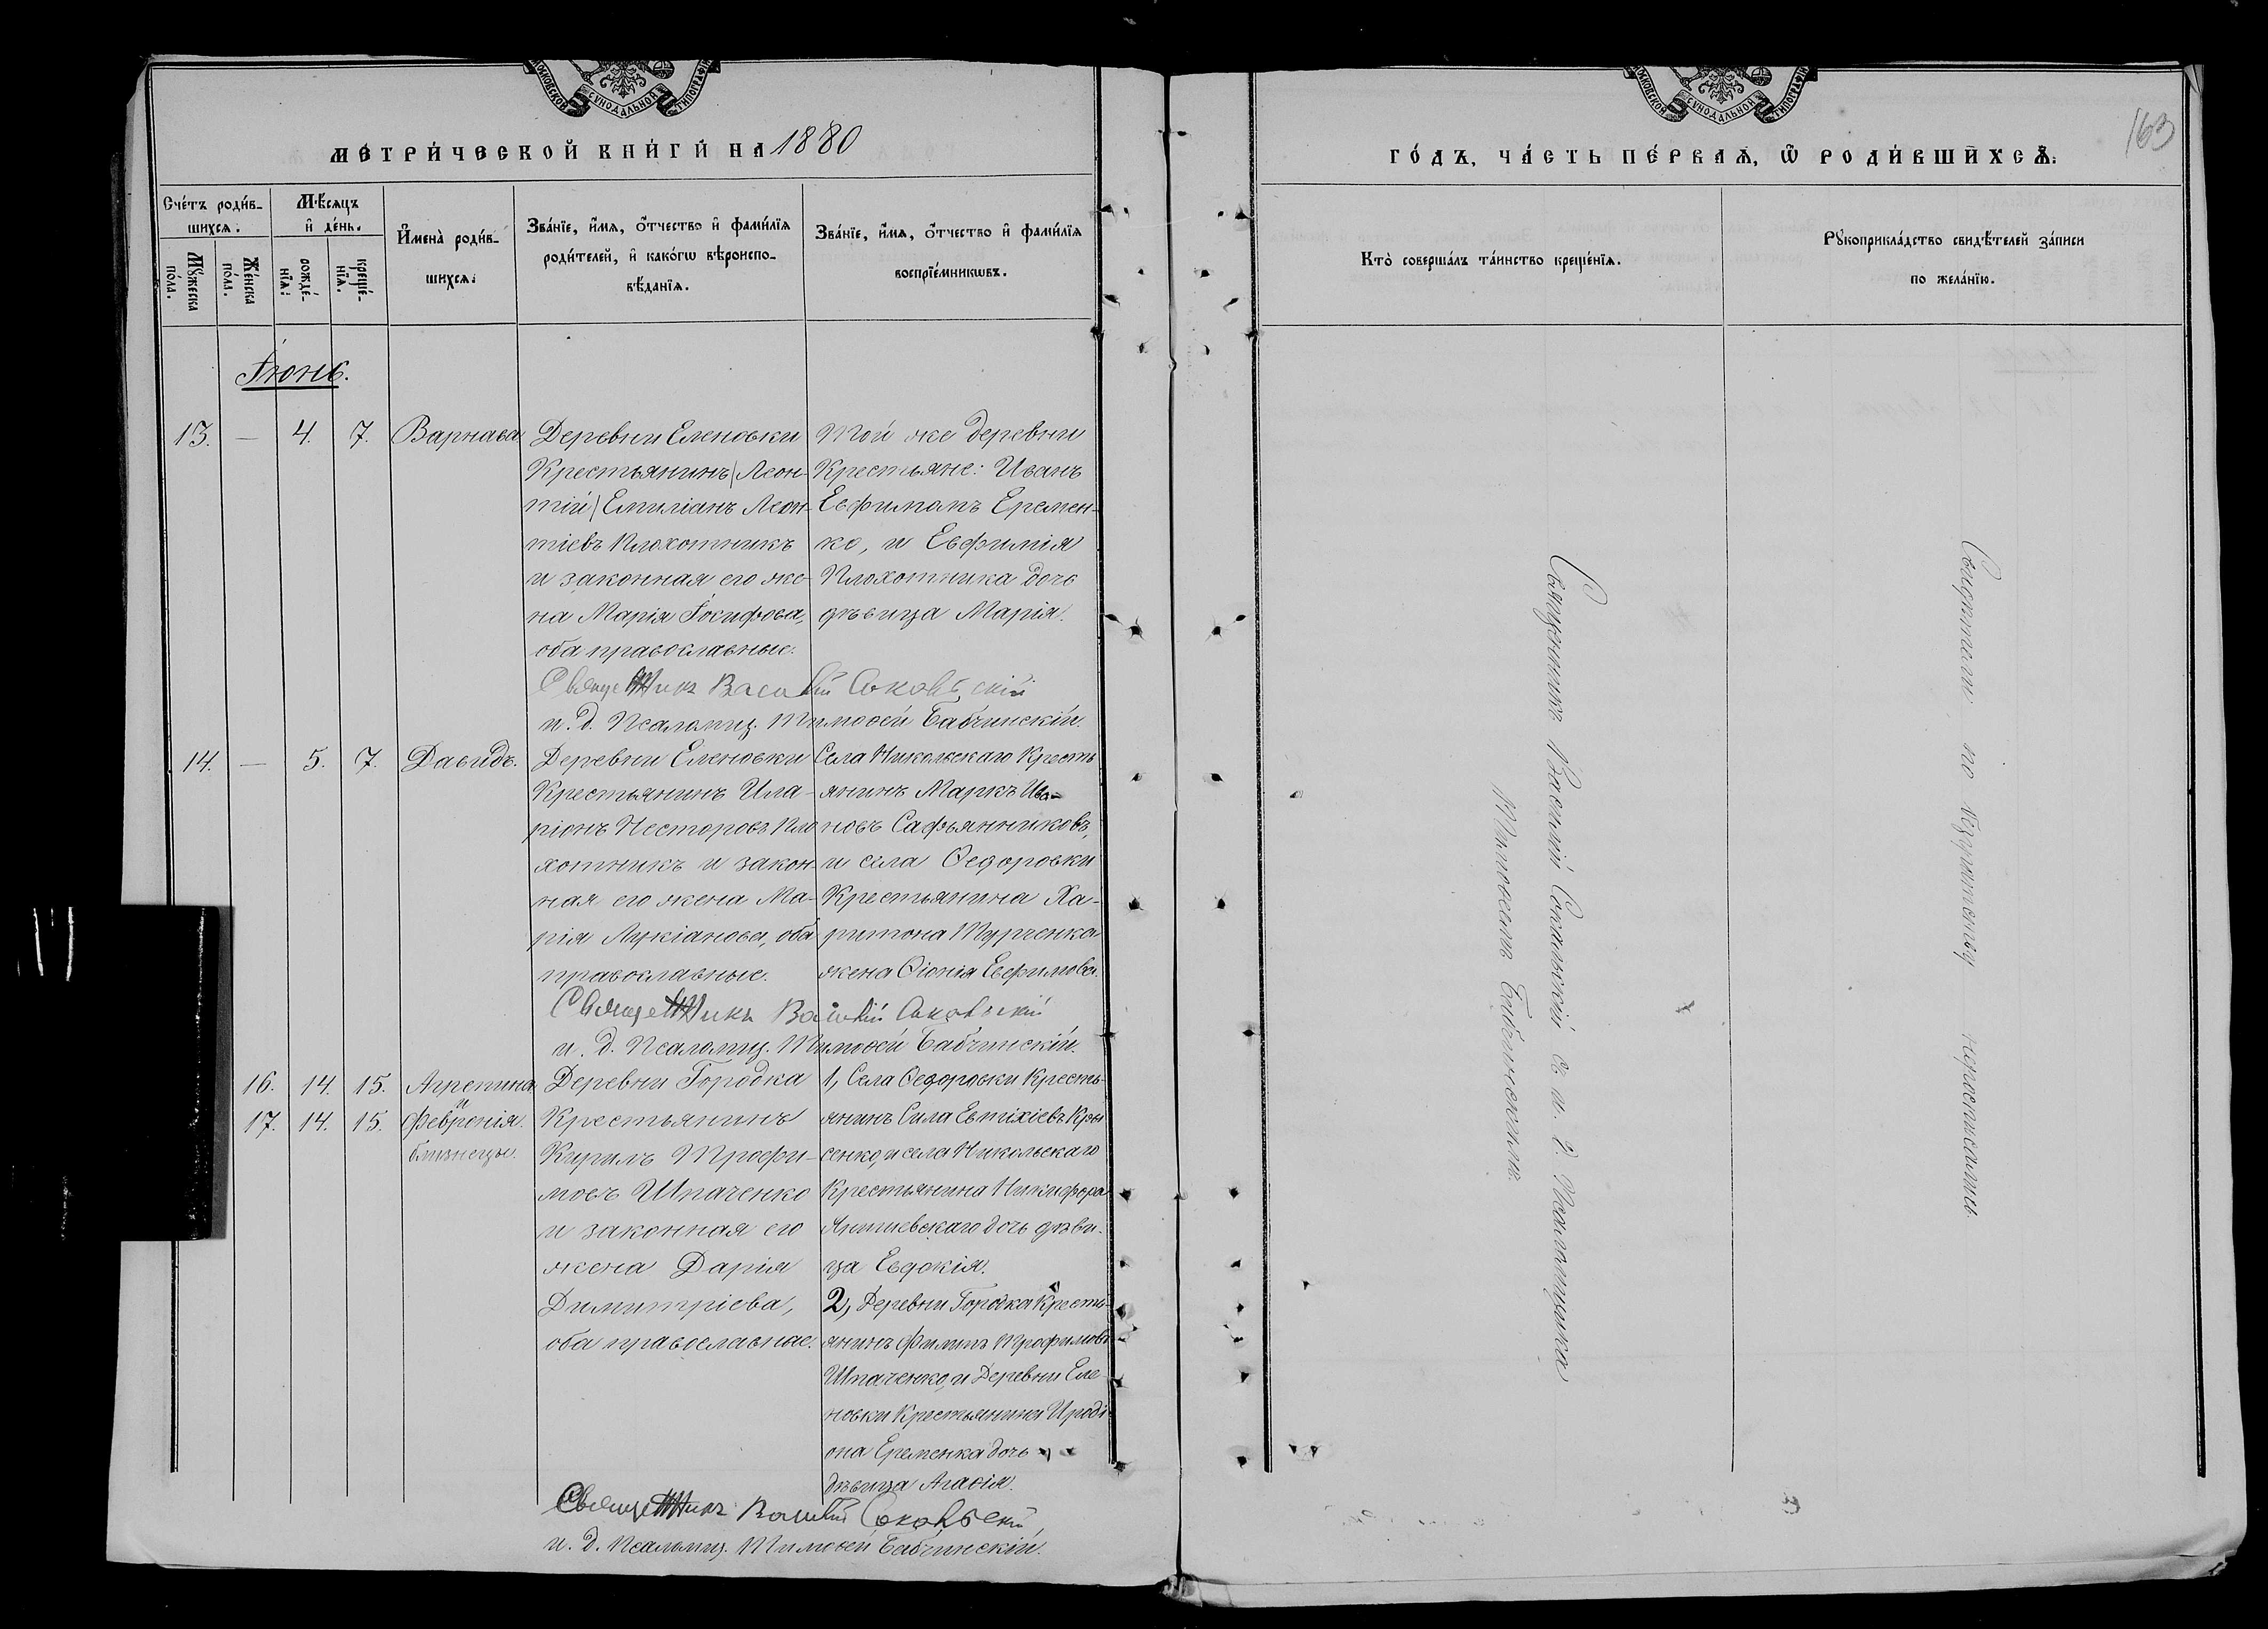 МОСКОВСКОЙ СѴНОДАЛЬНОЙ ТИПОГРАФІИ
МЕТРИ́ЧЕСКОЙ КНИ́ГИ НА 1880
Сче́тъ роди́в-
шихсѧ.
Мѣ́сѧцъ
и҆ де́нь.
Мꙋ́жеска
по́ла.
Же́нска
по́ла.
рожде́-
нїѧ.
креще́-
нїѧ.
И҆мена̀ роди́в-
шихсѧ.
Зва́нїе, и҆́мѧ, ѻ҆́тчество и҆ фами́лїѧ
роди́телей, и҆ како́гѡ вѣроиспо-
вѣ́данїѧ.
Зва́нїе, и҆́мѧ, ѻ҆́тчество и҆ фами́лїѧ
воспрїе́мникѡвъ.
Іюнь.
13. — 4. 7. Варнава
Деревни Еленовки
Крестьянинъ (Леон-
тій) Емиліанъ Леон-
тіевъ Плохотникъ
и законная его же-
на Марія Іосифова,
оба православные.
Той же деревни
Крестьяне: Иванъ
Евфимовъ Еремен-
ко, и Евфимія
Плохотника дочь
дѣвица Марія.
Священникъ Василій Сокольскій
и. д. Псаломщ. Тимоѳей Бабчинскій.
14. — 5. 7. Давидъ.
Деревни Еленовки
Крестьянинъ Ила-
ріонъ Несторовъ Пло
хотникъ и закон-
ная его жена Ма-
рія Лукіанова, оба
православные.
Села Никольскаго Кресть
янинъ Маркъ Ива-
новъ Сафьянниковъ,
и села Ѳедоровки
Крестьянина Ха-
ритона Турченка
жена Ѳіонія Евфимова.
Священникъ Василій Сокольскій
и. д. Псаломщ. Тимоѳей Бабчинскій.
16. 14. 15. Агрепина
и
17. 14. 15. Февронія.
близнецы.
Деревни Городка
Крестьянинъ
Кирилъ Трофи-
мовъ Шпаченко
и законная его
жена Дарія
Димитріева,
оба православные.
1, Села Ѳедоровки Кресть-
янинъ Сила Евтіхіевъ Кры
сенко, и села Никольскаго
Крестьянина Никифора
дочь дѣви-
ца Евдокія.
2, Деревни Городка Кресть-
янинъ Филипъ Трофимовъ
Шпаченко, и Деревни Еле
новки Крестьянина Ироді-
она Еременка дочь
дѣвица Агаѳія.
Священникъ Василій Сокольскій,
и. д. Псаломщ. Тимоѳей Бабчинскій.
МОСКОВСКОЙ СѴНОДАЛЬНОЙ ТИПОГРАФІИ
163
ГО́ДЪ, ЧА́СТЬ ПЕ́РВАѦ, Ѡ҆ РОДИ́ВШИХСѦ.
Кто̀ соверша́лъ та́инство креще́нїѧ.
Рꙋкоприкла́дство свидѣ́телей за́писи
по жела́нїю.
Священникъ Василій Сокольскій съ и. д. Псаломщика
Тимоѳеемъ Бабчинскимъ.
Свидѣтели по неграмотству